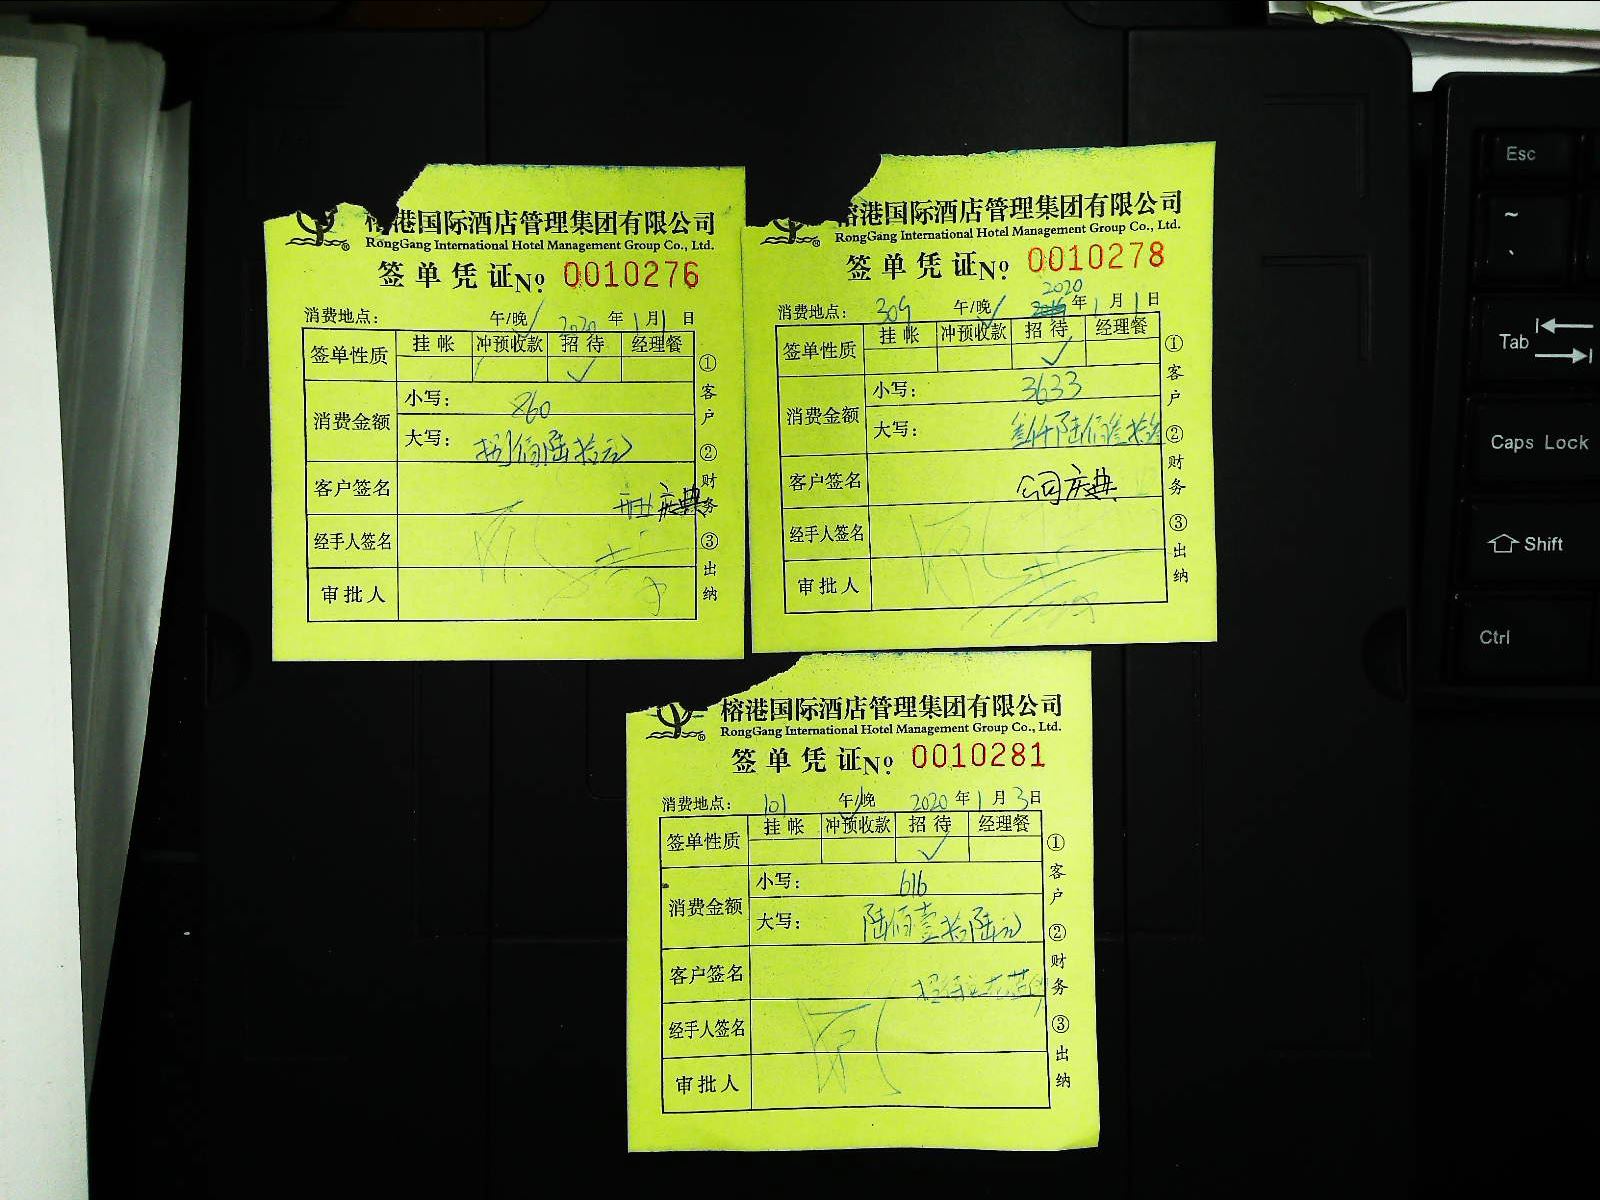 榕港国际酒店管理集团有限公司
RongGang International Hotel Management Group Co., Ltd.
签单凭证No 0010276
消费地点： 午/晚 2020年1月1日
签单性质 挂帐 冲预收款 招待 经理餐
消费金额
小写： 860
大写： 捌佰陆拾元
客户签名 庆典
经手人签名
审批人
①客户 ②财务 ③出纳
榕港国际酒店管理集团有限公司
RongGang International Hotel Management Group Co., Ltd.
签单凭证No 0010278
2020
消费地点： 309 午/晚 年1月1日
签单性质 挂帐 冲预收款 招待 经理餐
消费金额
小写： 3633
大写： 叁仟陆佰叁拾叁
客户签名 公司庆典
经手人签名
审批人
①客户 ②财务 ③出纳
榕港国际酒店管理集团有限公司
RongGang International Hotel Management Group Co., Ltd.
签单凭证No 0010281
消费地点： 101 午/晚 2020年1月3日
签单性质 挂帐 冲预收款 招待 经理餐
消费金额
小写： 616
大写： 陆佰壹拾陆元
客户签名
经手人签名
审批人
①客户 ②财务 ③出纳
Esc
~
Tab
Caps Lock
Shift
Ctrl